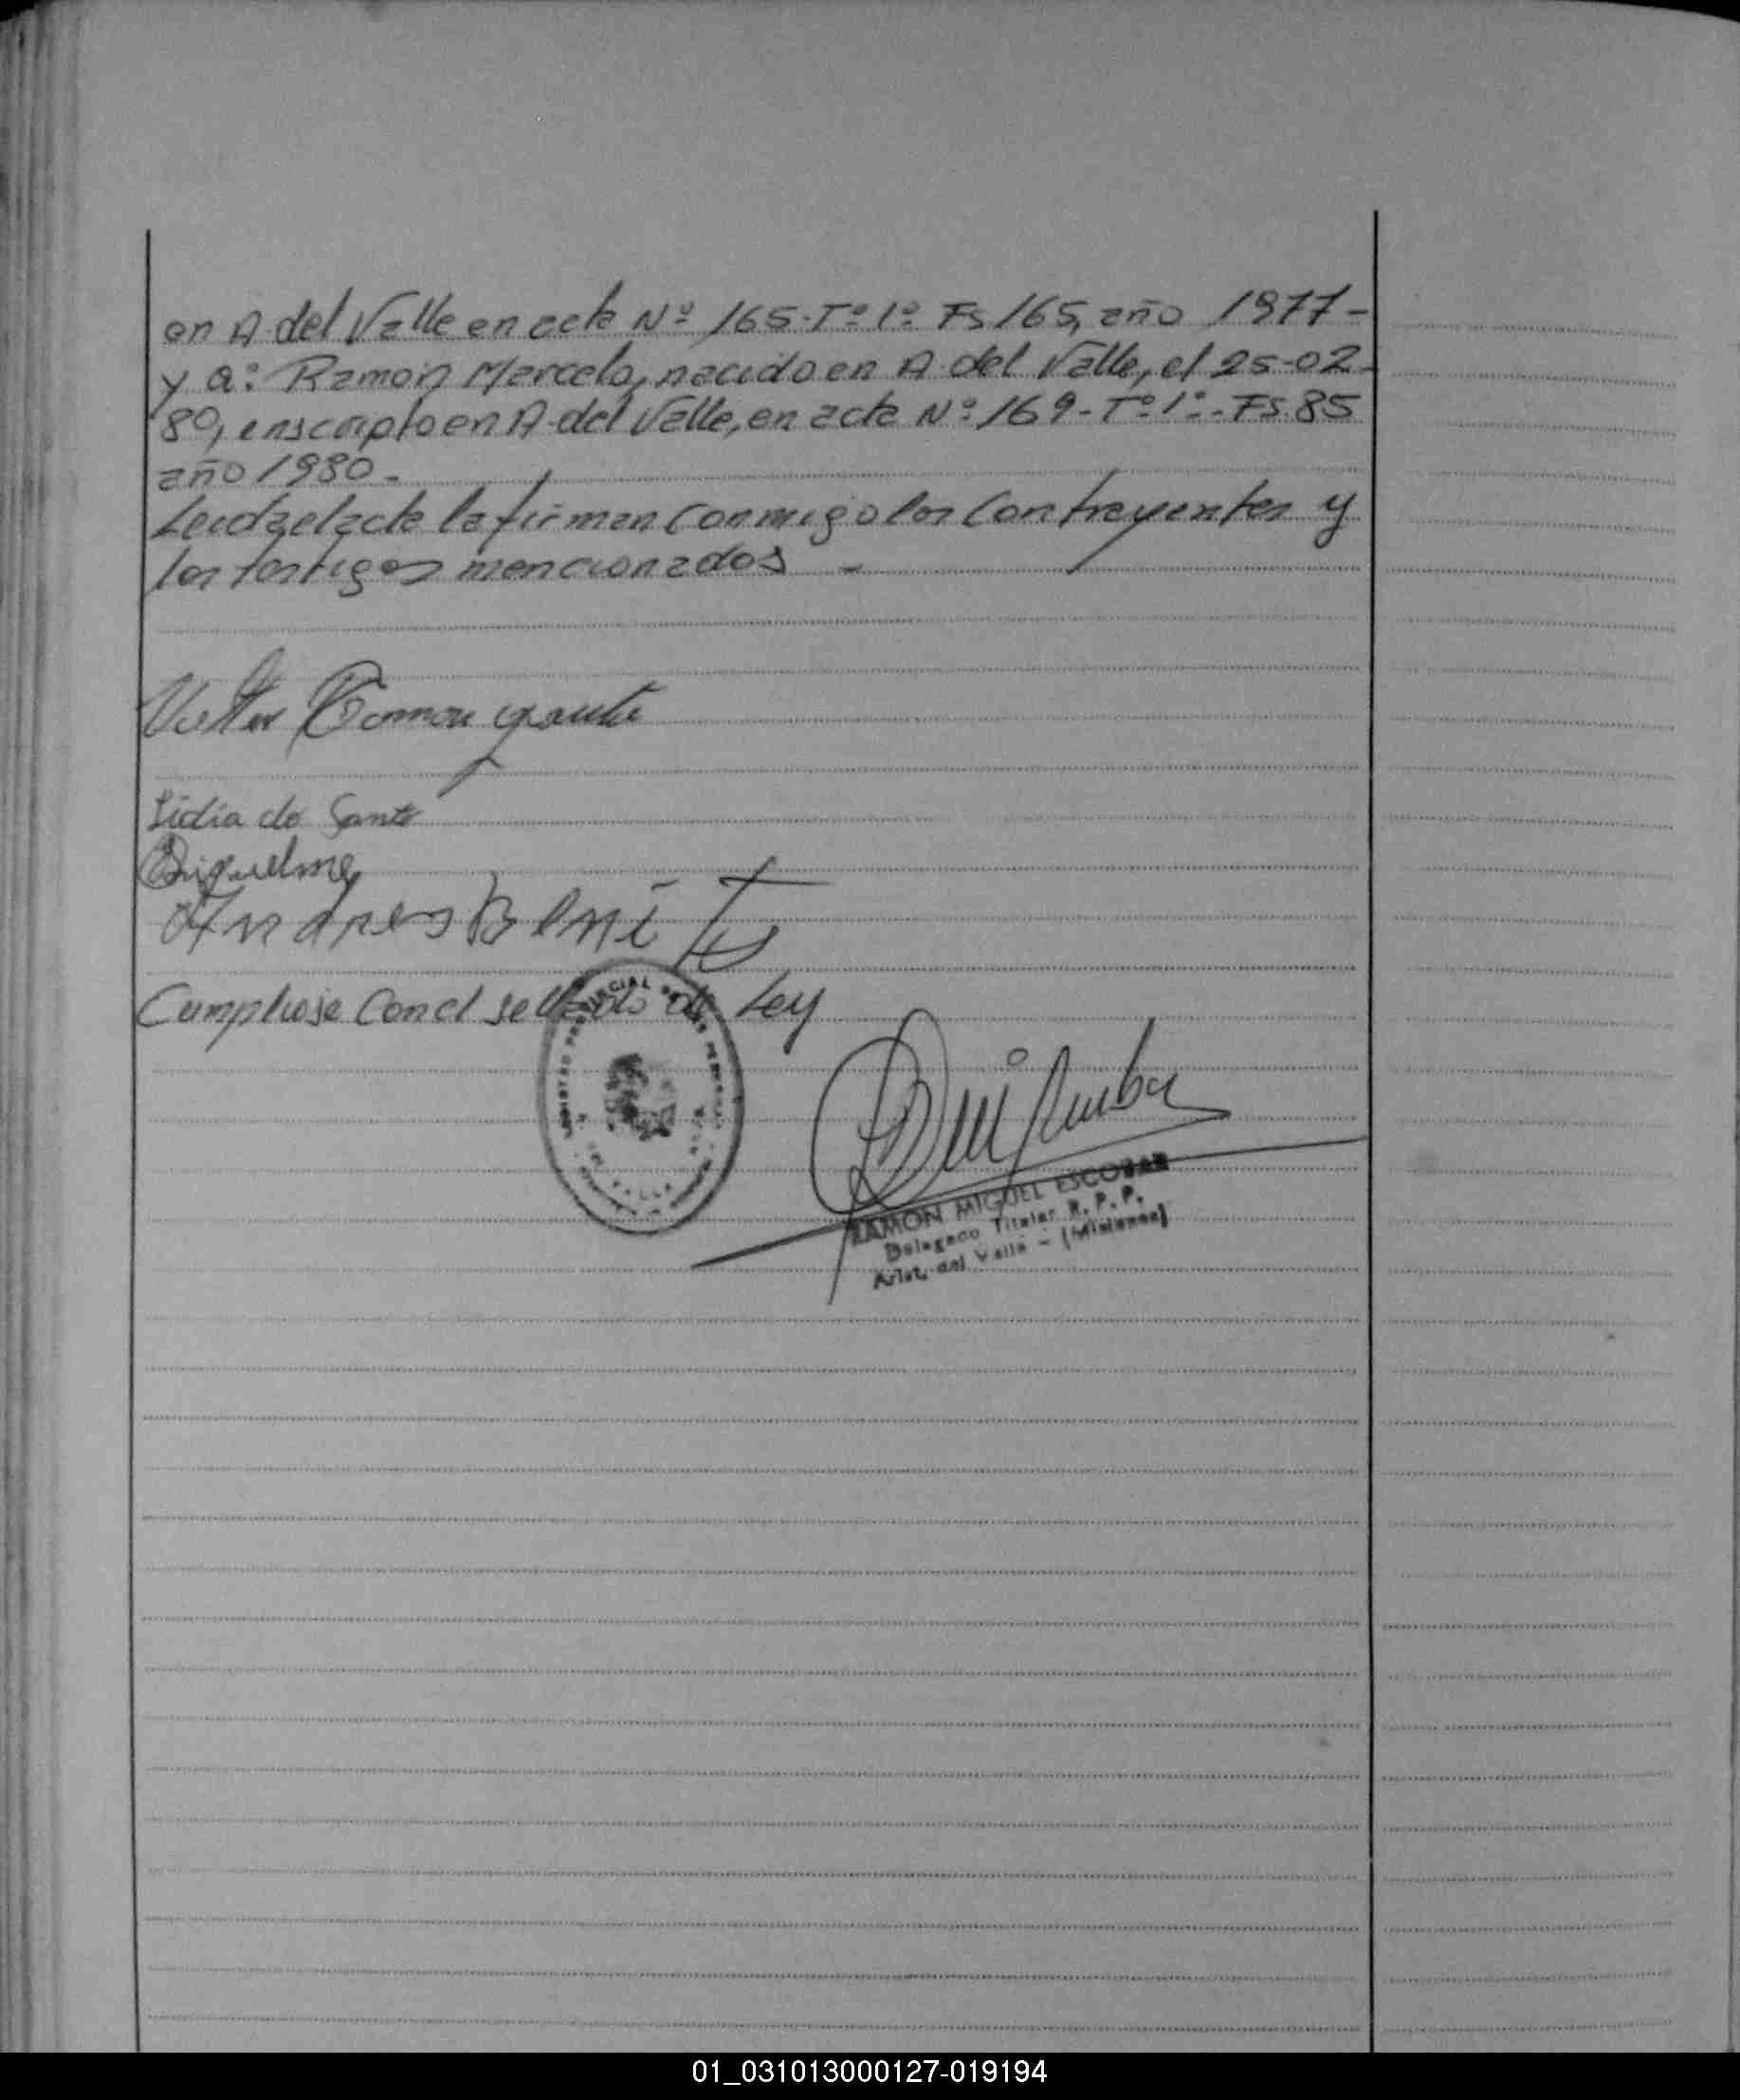 en A. del Valle en acta Nº 165-Tº 1º Fs 165, año 1977-
y a: Ramón Marcelo, nacido en A. del Valle, el 25-02-
80, inscripto en A. del Valle, en acta Nº 169-Tº 1º-Fs. 85
año 1980.-
Leida el acta la firman conmigo los contrayentes y
los testigos mencionados -
Ramon
Lidia do Santo
Riquelme
Andres Beni
Cumpliose con el sellado de Ley
RAMON MIGUEL ESCOBAR
Delegado Titular R. P. P.
Arist. del Valle - (Misiones)
01_031013000127-019194